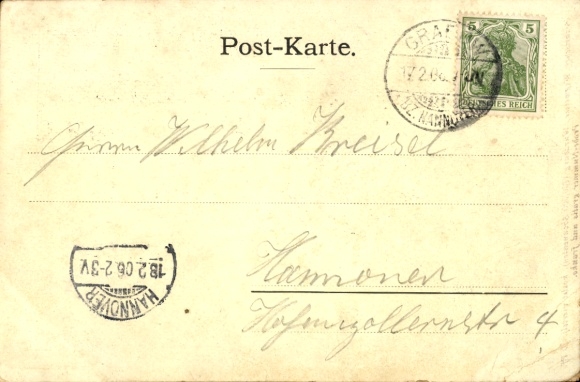 Post-Karte.
5 5
DEUTSCHES REICH
17.2.06.
HANNOVER
Herrn Wilhelm Kreisel
HANNOVER
18.2.06.2-3V.
Hannover
Hohenzollernstr 4